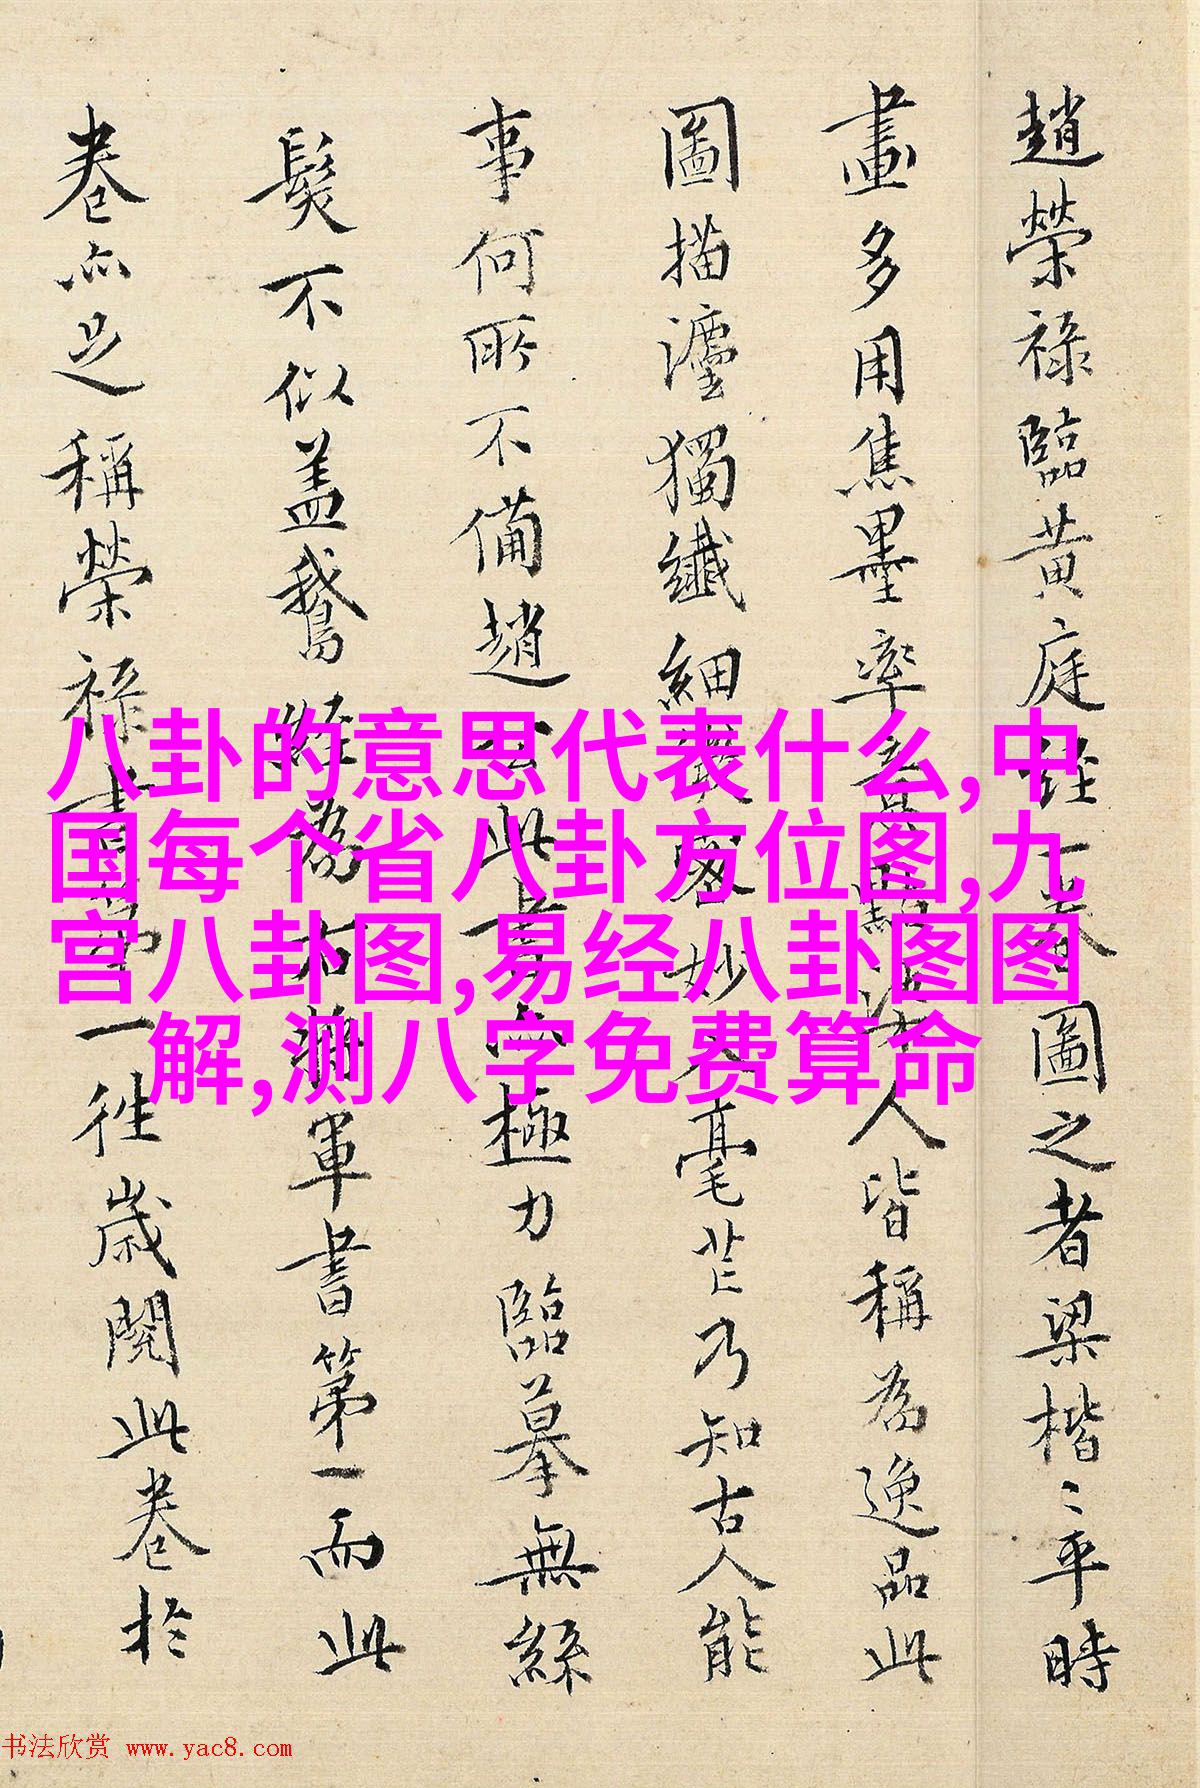 趙榮祿臨黃庭經一卷圖之者梁楷〻平時
畫多用焦墨率意點人皆稱為逸品此
圖描灋獨纖細嚴密妙入毫芒乃知古人能
事何所不備趙公此書亦極力臨摹無絲
髮不似盖鵞經為右將軍書第一而此
卷亦足稱榮祿書第一往歲閱此卷於
八卦的意思代表什么,中
国每个省八卦方位图,九
宫八卦图,易经八卦图图
解,测八字免费算命
书法欣赏 www.yac8.com